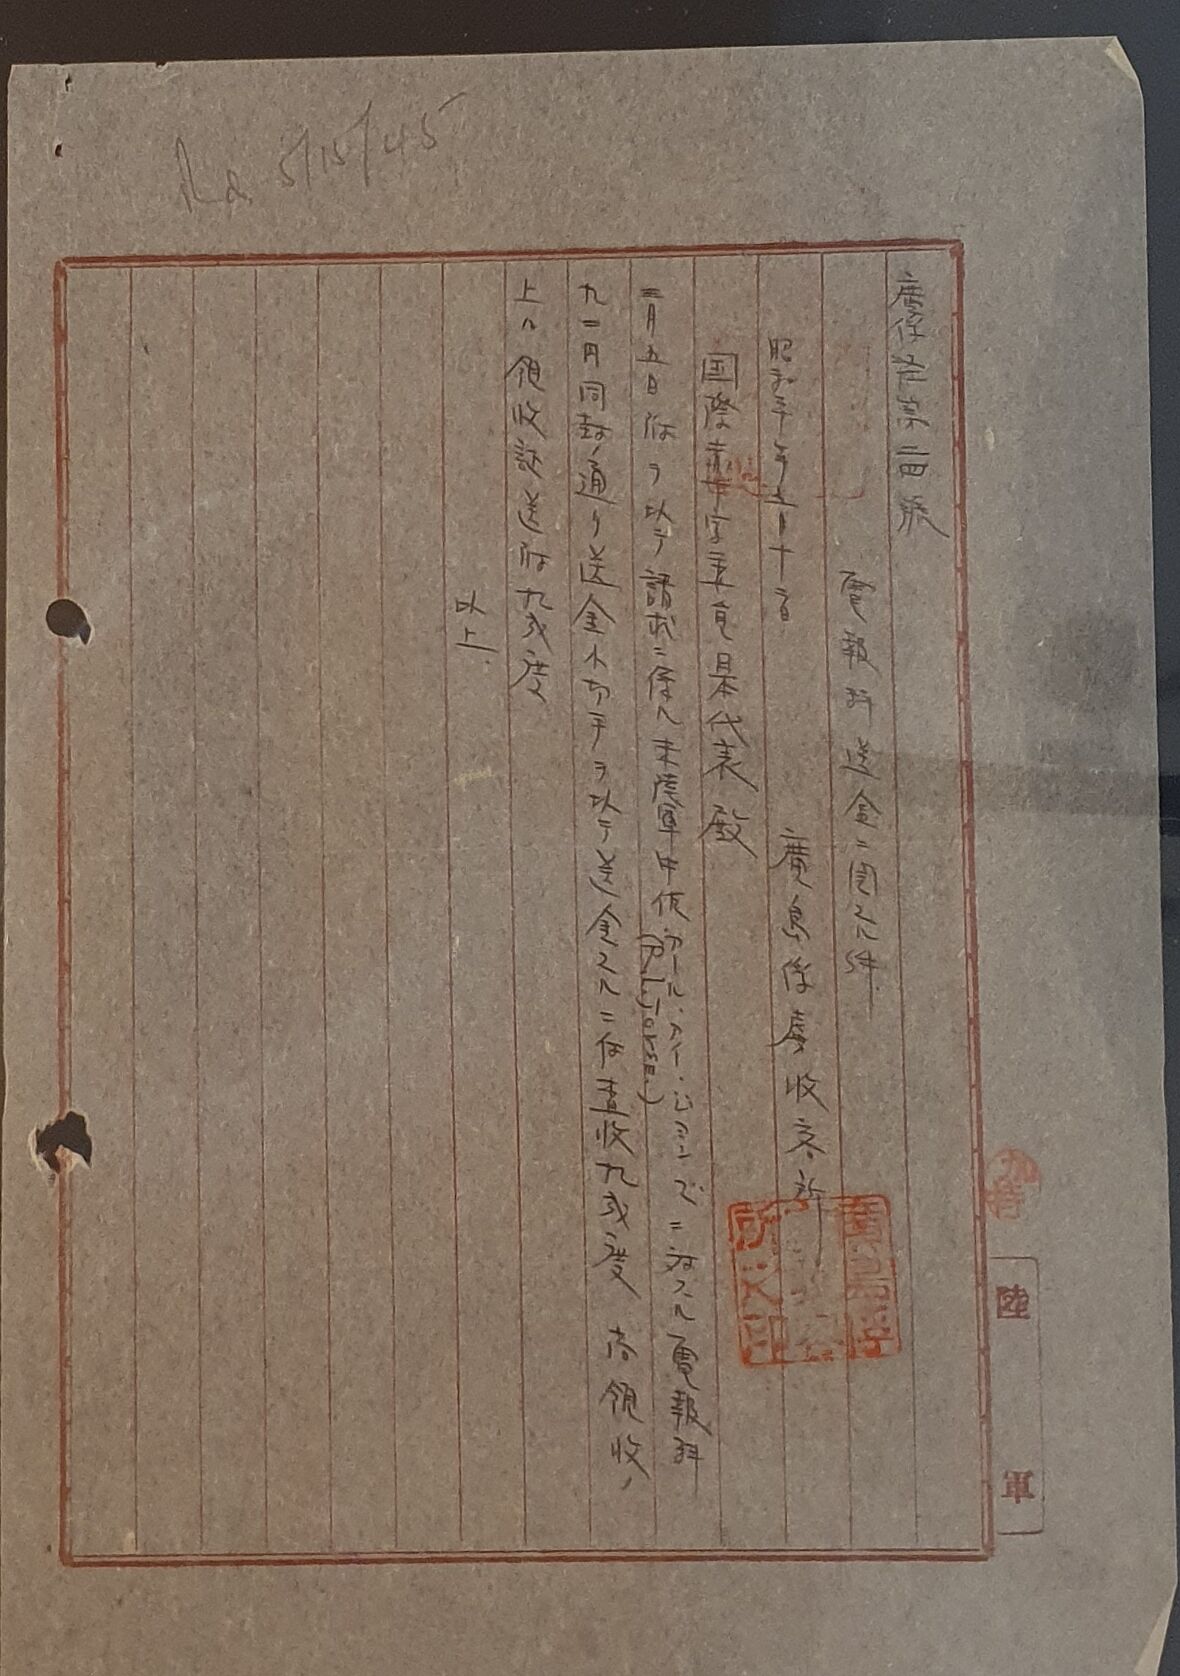 Rcd. 5/15/45
廣俘発第二四號
電報料送金ニ関スル件
昭和二十年五月十一日
廣島俘虜收容所
国際赤十字委員日本代表殿
三月五日附ヲ以テ請求ニ係ル米陸軍中佐カール・アイ・ジョンズ
ニ対スル電報料
九一円同封ノ通リ送金小切手ヲ以テ送金スルニ付査收相成度 尚領收ノ
上ハ領收証送付相成度
以上.
陸軍